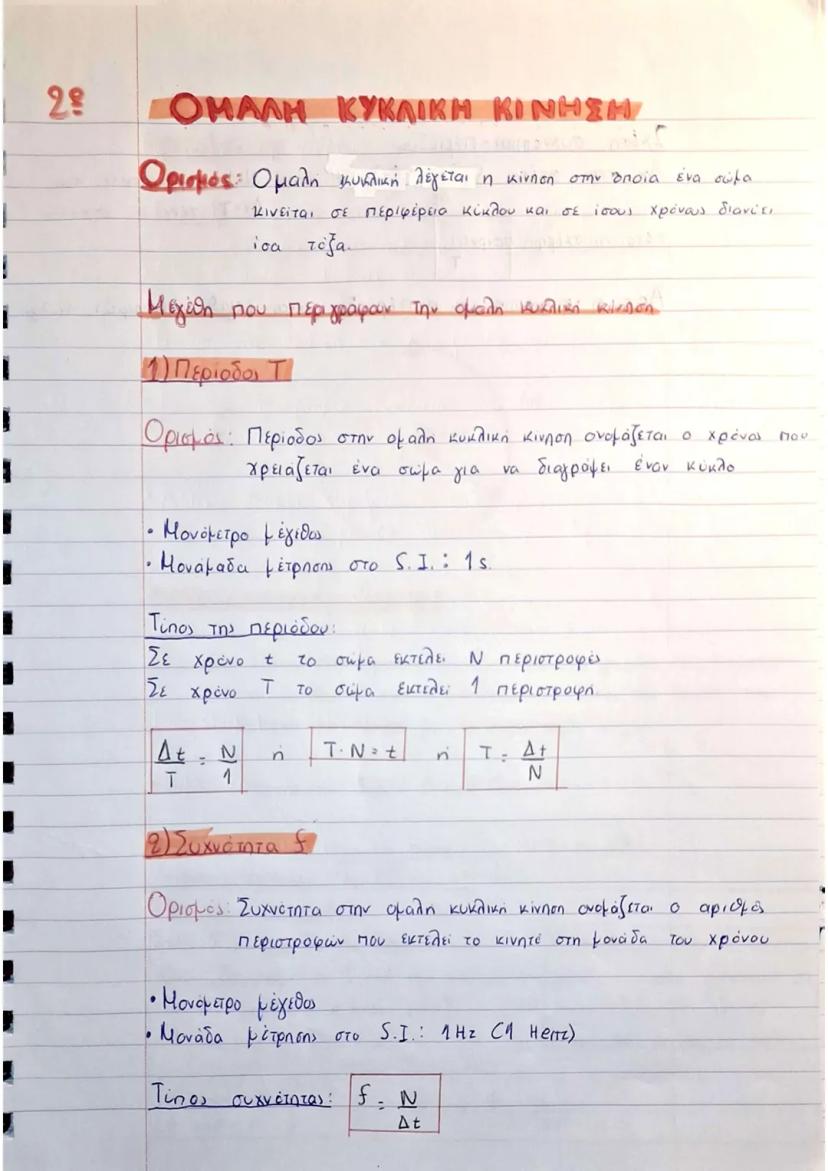 2º ΟΜΑΛΗ ΚΥΚΛΙΚΗ ΚΙΝΗΣΗ
Ορισμός: Ομαλη κυκλική λέγεται η κίνηση στην οποία ένα σώμα
κινείται σε περιφέρεια κύκλου και σε ίσους χρόνους διανύει
ίσα τόξα.
Μεγέθη που περιγράφουν την ομαλη κυκλική κίνηση
1) Περίοδος T
Ορισμός: Περίοδος στην ομαλη κυκλική κίνηση ονομάζεται ο χρόνος που
χρειάζεται ένα σώμα για να διαγράψει έναν κύκλο
• Μονόμετρο μέγεθος
• Μονάμαδα μέτρησης στο S.I.: 1s.
Τύπος της περιόδου:
Σε χρόνο t το σώμα εκτελεί N περιστροφές
Σε χρόνο T το σώμα εκτελεί 1 περιστροφή
Δt/T = N/1 ή T·N = t ή T = Δt/N
2) Συχνότητα f
Ορισμός: Συχνότητα στην ομαλη κυκλική κίνηση ονομάζεται ο αριθμός
περιστροφών που εκτελεί το κινητό στη μονάδα του χρόνου
• Μονόμετρο μέγεθος
• Μονάδα μέτρησης στο S.I.: 1Hz (1 Hertz)
Τύπος συχνότητας: f = N/Δt